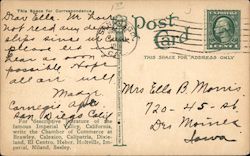 This Space for Correspondence
Post
Card
THIS SPACE FOR ADDRESS ONLY
Dear Ella. We have
not read any
since
please
hear as soon as
possible. Hope
all are well
Madge
Carnegie
San Diego Calif
For descriptive literature of the
famous Imperial Valley, California,
write the Chamber of Commerce at
Brawley, Calexico, Calipatria, Dixie-
land, El Centro, Heber, Holtville, Im-
perial, Niland, Seeley.
Mrs Ella B Morris
720-45-st
Des Moines
Iowa